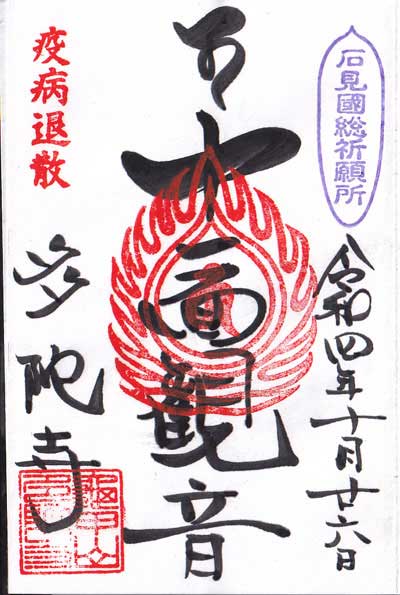 石見國総祈願所
令和四年十月廿六日
十一面観音
疫病退散
多陀寺